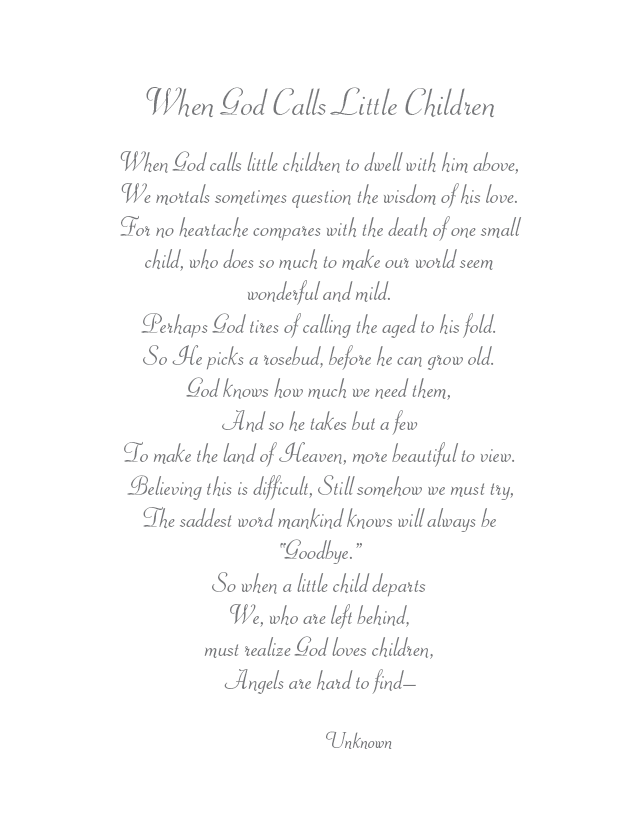 When God Calls Little Children
When God calls little children to dwell with him above,
We mortals sometimes question the wisdom of his love.
For no heartache compares with the death of one small
child, who does so much to make our world seem
wonderful and mild.
Perhaps God tires of calling the aged to his fold.
So He picks a rosebud, before he can grow old.
God knows how much we need them,
And so he takes but a few
To make the land of Heaven, more beautiful to view.
Believing this is difficult, Still somehow we must try,
The saddest word mankind knows will always be
"Goodbye."
So when a little child departs
We, who are left behind,
must realize God loves children,
Angels are hard to find—
Unknown